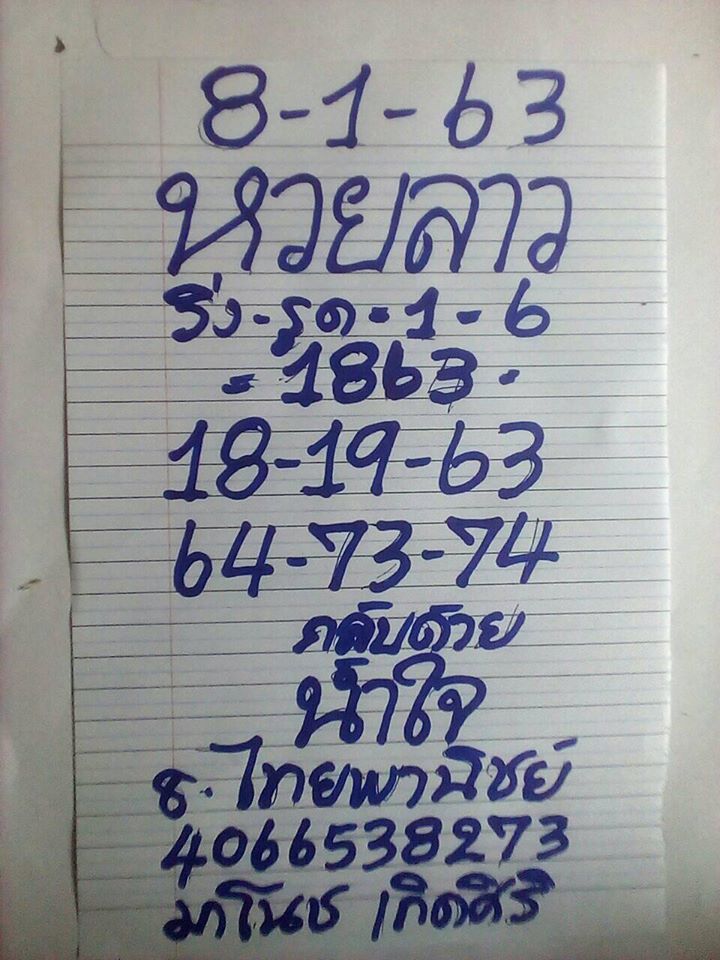 8-1-63
หวยลาว
วิ่ง-รูด-1-6
=1863.
18-19-63
64-73-74
กลับด้วย
น้ำใจ
ธ.ไทยพานิชย์
4066538273
มาโนช เกิดศิริ